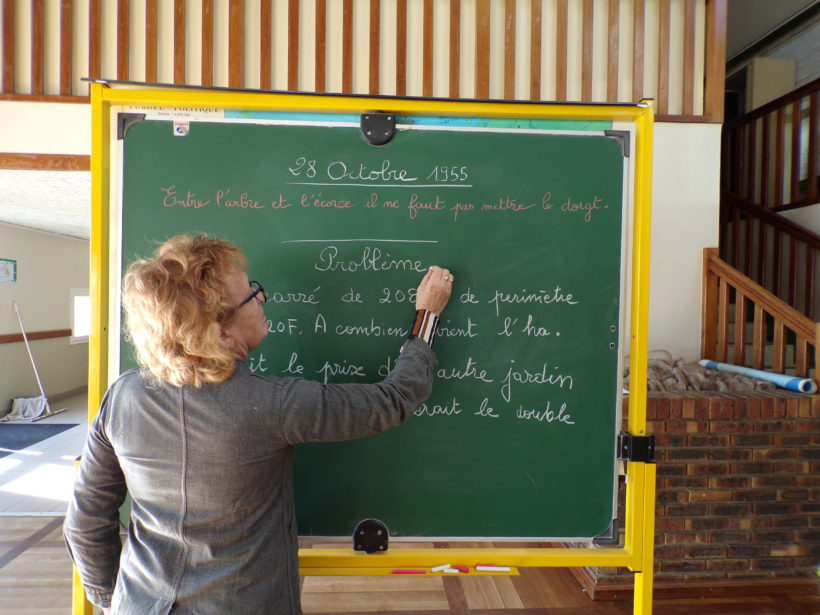 EUROPE POLITIQUE
28 Octobre 1955
Entre l'arbre et l'écorce il ne faut pas mettre le doigt.
Problème
arré de 208 de perimètre
20F. A combien vient l'ha.
it le prix d autre jardin
rait le double